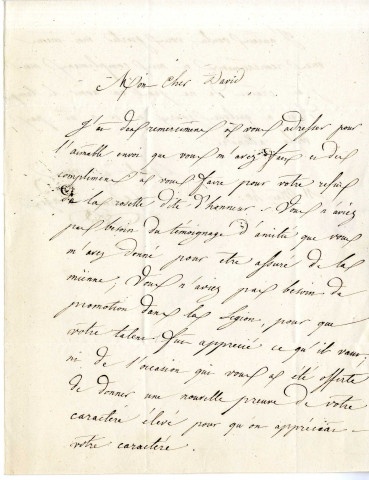 Mon Cher David
J'ai des remerciemens à vous adresser pour
l'aimable envoi que vous m'avez fait et des
complimens à vous faire pour votre refus
de la rosette dite d'honneur. Vous n'aviez
pas besoin du témoignage d'amitié que vous
m'avez donné pour être assuré de la
mienne; Vous n'aviez pas besoin de
promotion dans la légion, pour que
votre talent fut apprecié ce qu'il vaut,
ni de l'occasion qui vous a été offerte
de donner une nouvelle preuve de votre
caractére élévé pour qu'on appréciat
votre caractére.